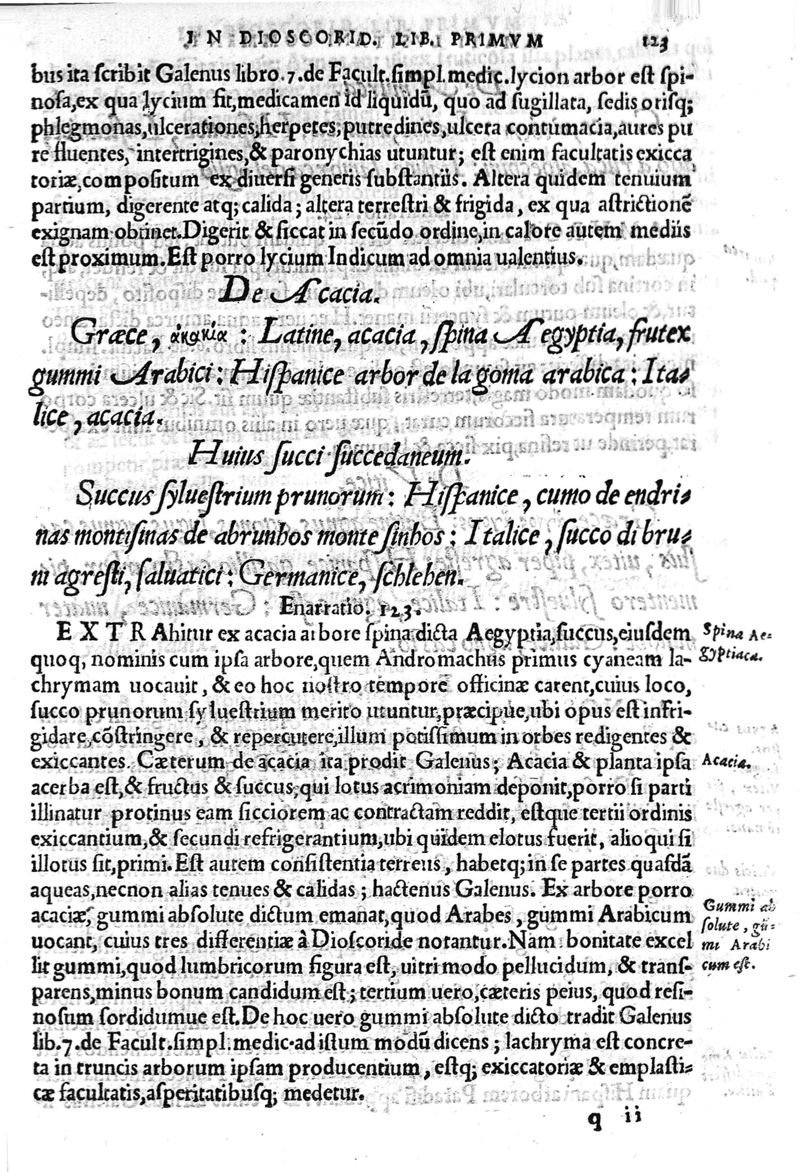 IN DIOSCORID. LIB. PRIMVM 123
bus ita ſcribit Galenus libro.7.de Facult.ſimpl.medic.lycion arbor eſt ſpi-
noſa,ex qua lycium fit,medicamen id liquidū, quo ad ſugillata, ſedis orisq;
phlegmonas,ulcerationes,herpetes,putredines,ulcera contumacia,aures pu
re fluentes, intertrigines,& paronychias utuntur; eſt enim facultatis exicca
toriæ,compoſitum ex diuerſi generis ſubſtantiis. Altera quidem tenuium
partium, digerente atq; calida; altera terreſtri & frigida, ex qua aſtrictionē
exignam obtinet.Digerit & ſiccat in ſecūdo ordine,in calore autem mediis
eſt proximum.Eſt porro lycium Indicum ad omnia ualentius.
De Acacia.
Græce, ἀκακία : Latine, acacia, ſpina Aegyptia, frutex
gummi Arabici: Hiſpanice arbor de la goma arabica: Ita-
lice, acacia.
Huius ſucci ſuccedaneum.
Succus ſylueſtrium prunorum: Hiſpanice, cumo de endri-
nas montiſinas de abrunhos monteſinhos: Italice, ſucco di bru-
ni agreſti, ſaluatici: Germanice, ſchlehen.
Enarratio. 123.
EXTRAhitur ex acacia arbore ſpina dicta Aegyptia,ſuccus,eiuſdem
Spina Ae-
gyptiaca.
quoq, nominis cum ipſa arbore,quem Andromachus primus cyaneam la-
chrymam uocauit, & eo hoc noſtro tempore officinæ carent,cuius loco,
ſucco prunorum ſylueſtrium merito utuntur,præcipue,ubi opus eſt infri-
gidare,cōſtringere, & repercutere,illum potiſſimum in orbes redigentes &
exiccantes. Cæterum de acacia ita prodit Galenus; Acacia & planta ipſa
Acacia.
acerba eſt,& fructus & ſuccus,qui lotus acrimoniam deponit,porro ſi parti
illinatur protinus eam ſicciorem ac contractam reddit, eſtque tertii ordinis
exiccantium,& ſecundi refrigerantium,ubi quidem elotus fuerit, alioqui ſi
illotus ſit,primi.Eſt autem conſiſtentia terreus, habetq; in ſe partes quaſdā
aqueas,necnon alias tenues & calidas; hactenus Galenus. Ex arbore porro
acaciæ, gummi abſolute dictum emanat,quod Arabes, gummi Arabicum
Gummi ab
ſolute, gū-
mi Arabi
cum eſt.
uocant, cuius tres differentiæ à Dioſcoride notantur.Nam bonitate excel
lit gummi,quod lumbricorum figura eſt, uitri modo pellucidum, & tranſ-
parens,minus bonum candidum eſt; tertium uero,cæteris peius, quod reſi-
noſum ſordidumue eſt.De hoc uero gummi abſolute dicto tradit Galenus
lib.7.de Facult.ſimpl.medic.ad iſtum modū dicens; lachryma eſt concre-
ta in truncis arborum ipſam producentium, eſtq; exiccatoriæ & emplaſti-
cæ facultatis,aſperitatibusq; medetur.
q ii